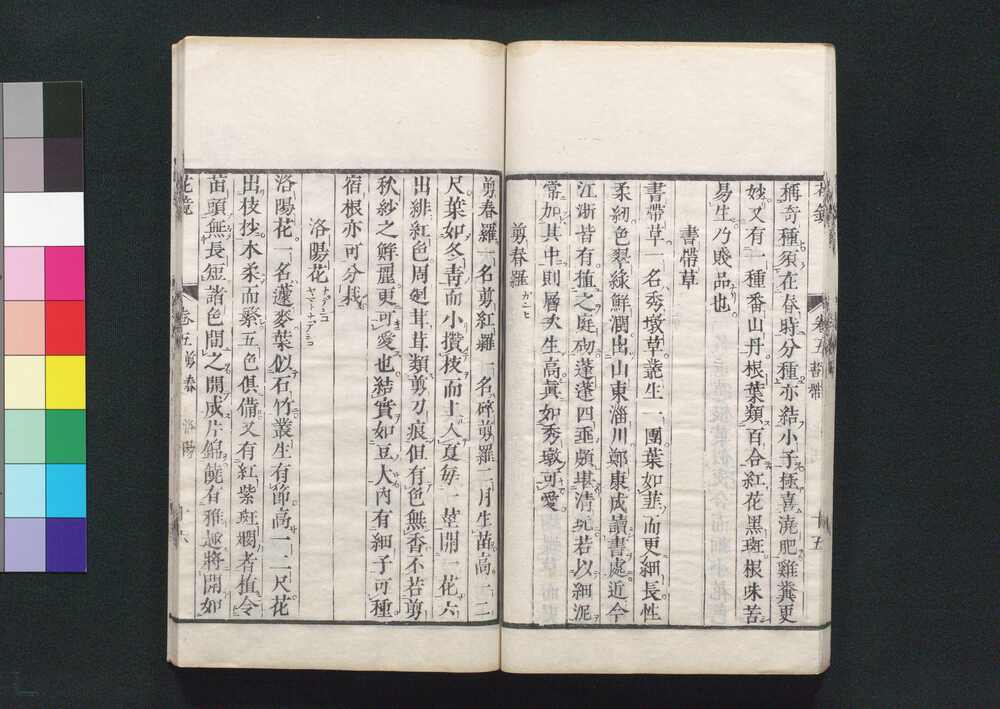 稱奇種須在春時分種亦結小子極喜澆肥雞糞更
妙又有一種番山丹根葉類百合紅花黑斑根味苦
易生乃賤品也
書帶草
書帶草一名秀墩草叢生一團葉如韭而更細長性
柔紉色翠綠鮮潤出山東淄川鄭康成讀書處近今
江浙皆有植之庭砌蓬蓬四垂頗堪清玩若以細泥
常加其中則層次生高眞如秀墩可愛
剪春羅 ガンヒ
剪春羅一名剪紅羅一名碎剪羅二月生苗高一二
尺葉如冬靑而小攢枝而上入夏每一莖開一花六
出緋紅色周𢌞茸茸類剪刀痕但有色無香不若剪
秋紗之鮮麗更可愛也結實如豆大內有細子可種
宿根亦可分栽
洛陽花
洛陽花一名蘧麥葉似石竹叢生有節高一二尺花
出枝抄木柔而繁五色俱備又有紅紫斑斕者植令
苗頭無長短諸色間之開成片錦饒有雅趣將開如
花鏡 卷五剪春 洛陽 十六